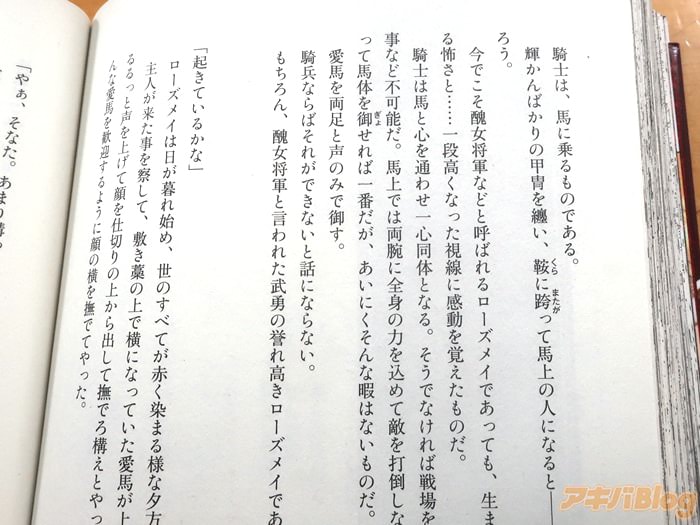 騎士は、馬に乗るものである。
輝かんばかりの甲冑を纏い、鞍に跨って馬上の人になると――
ろう。
今でこそ醜女将軍などと呼ばれるローズメイであっても、生ま
る怖さと……一段高くなった視線に感動を覚えたものだ。
騎士は馬と心を通わせ一心同体となる。そうでなければ戦場を
事など不可能だ。馬上では両腕に全身の力を込めて敵を打倒しな
って馬体を御せれば一番だが、あいにくそんな暇はないものだ。
愛馬を両足と声のみで御す。
騎兵ならばそれができないと話にならない。
もちろん、醜女将軍と言われた武勇の誉れ高きローズメイであ
「起きているかな」
ローズメイは日が暮れ始め、世のすべてが赤く染まる様な夕方
主人が来た事を察して、敷き藁の上で横になっていた愛馬が上
るるっと声を上げて顔を仕切りの上から出して撫でろ構えとやっ
んな愛馬を歓迎するように顔の横を撫でてやった。
「やぁ、そなた。あまり
アキバBlog